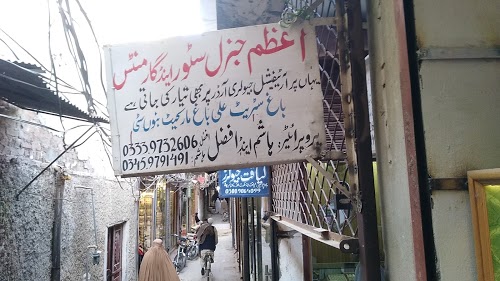 اعظم جنرل سٹور اینڈ گارمنٹس
یہاں پر آرٹیفیشل جیولری آرڈر پر بھی تیار کی جاتی ہے
باغ سٹریٹ علی باغ مارکیٹ بنوں سٹی
پروپرائیٹرز: ہاشم اینڈ افضل
افضل: 03339732606
ہاشم: 03459791491
لیاقت جیولرز